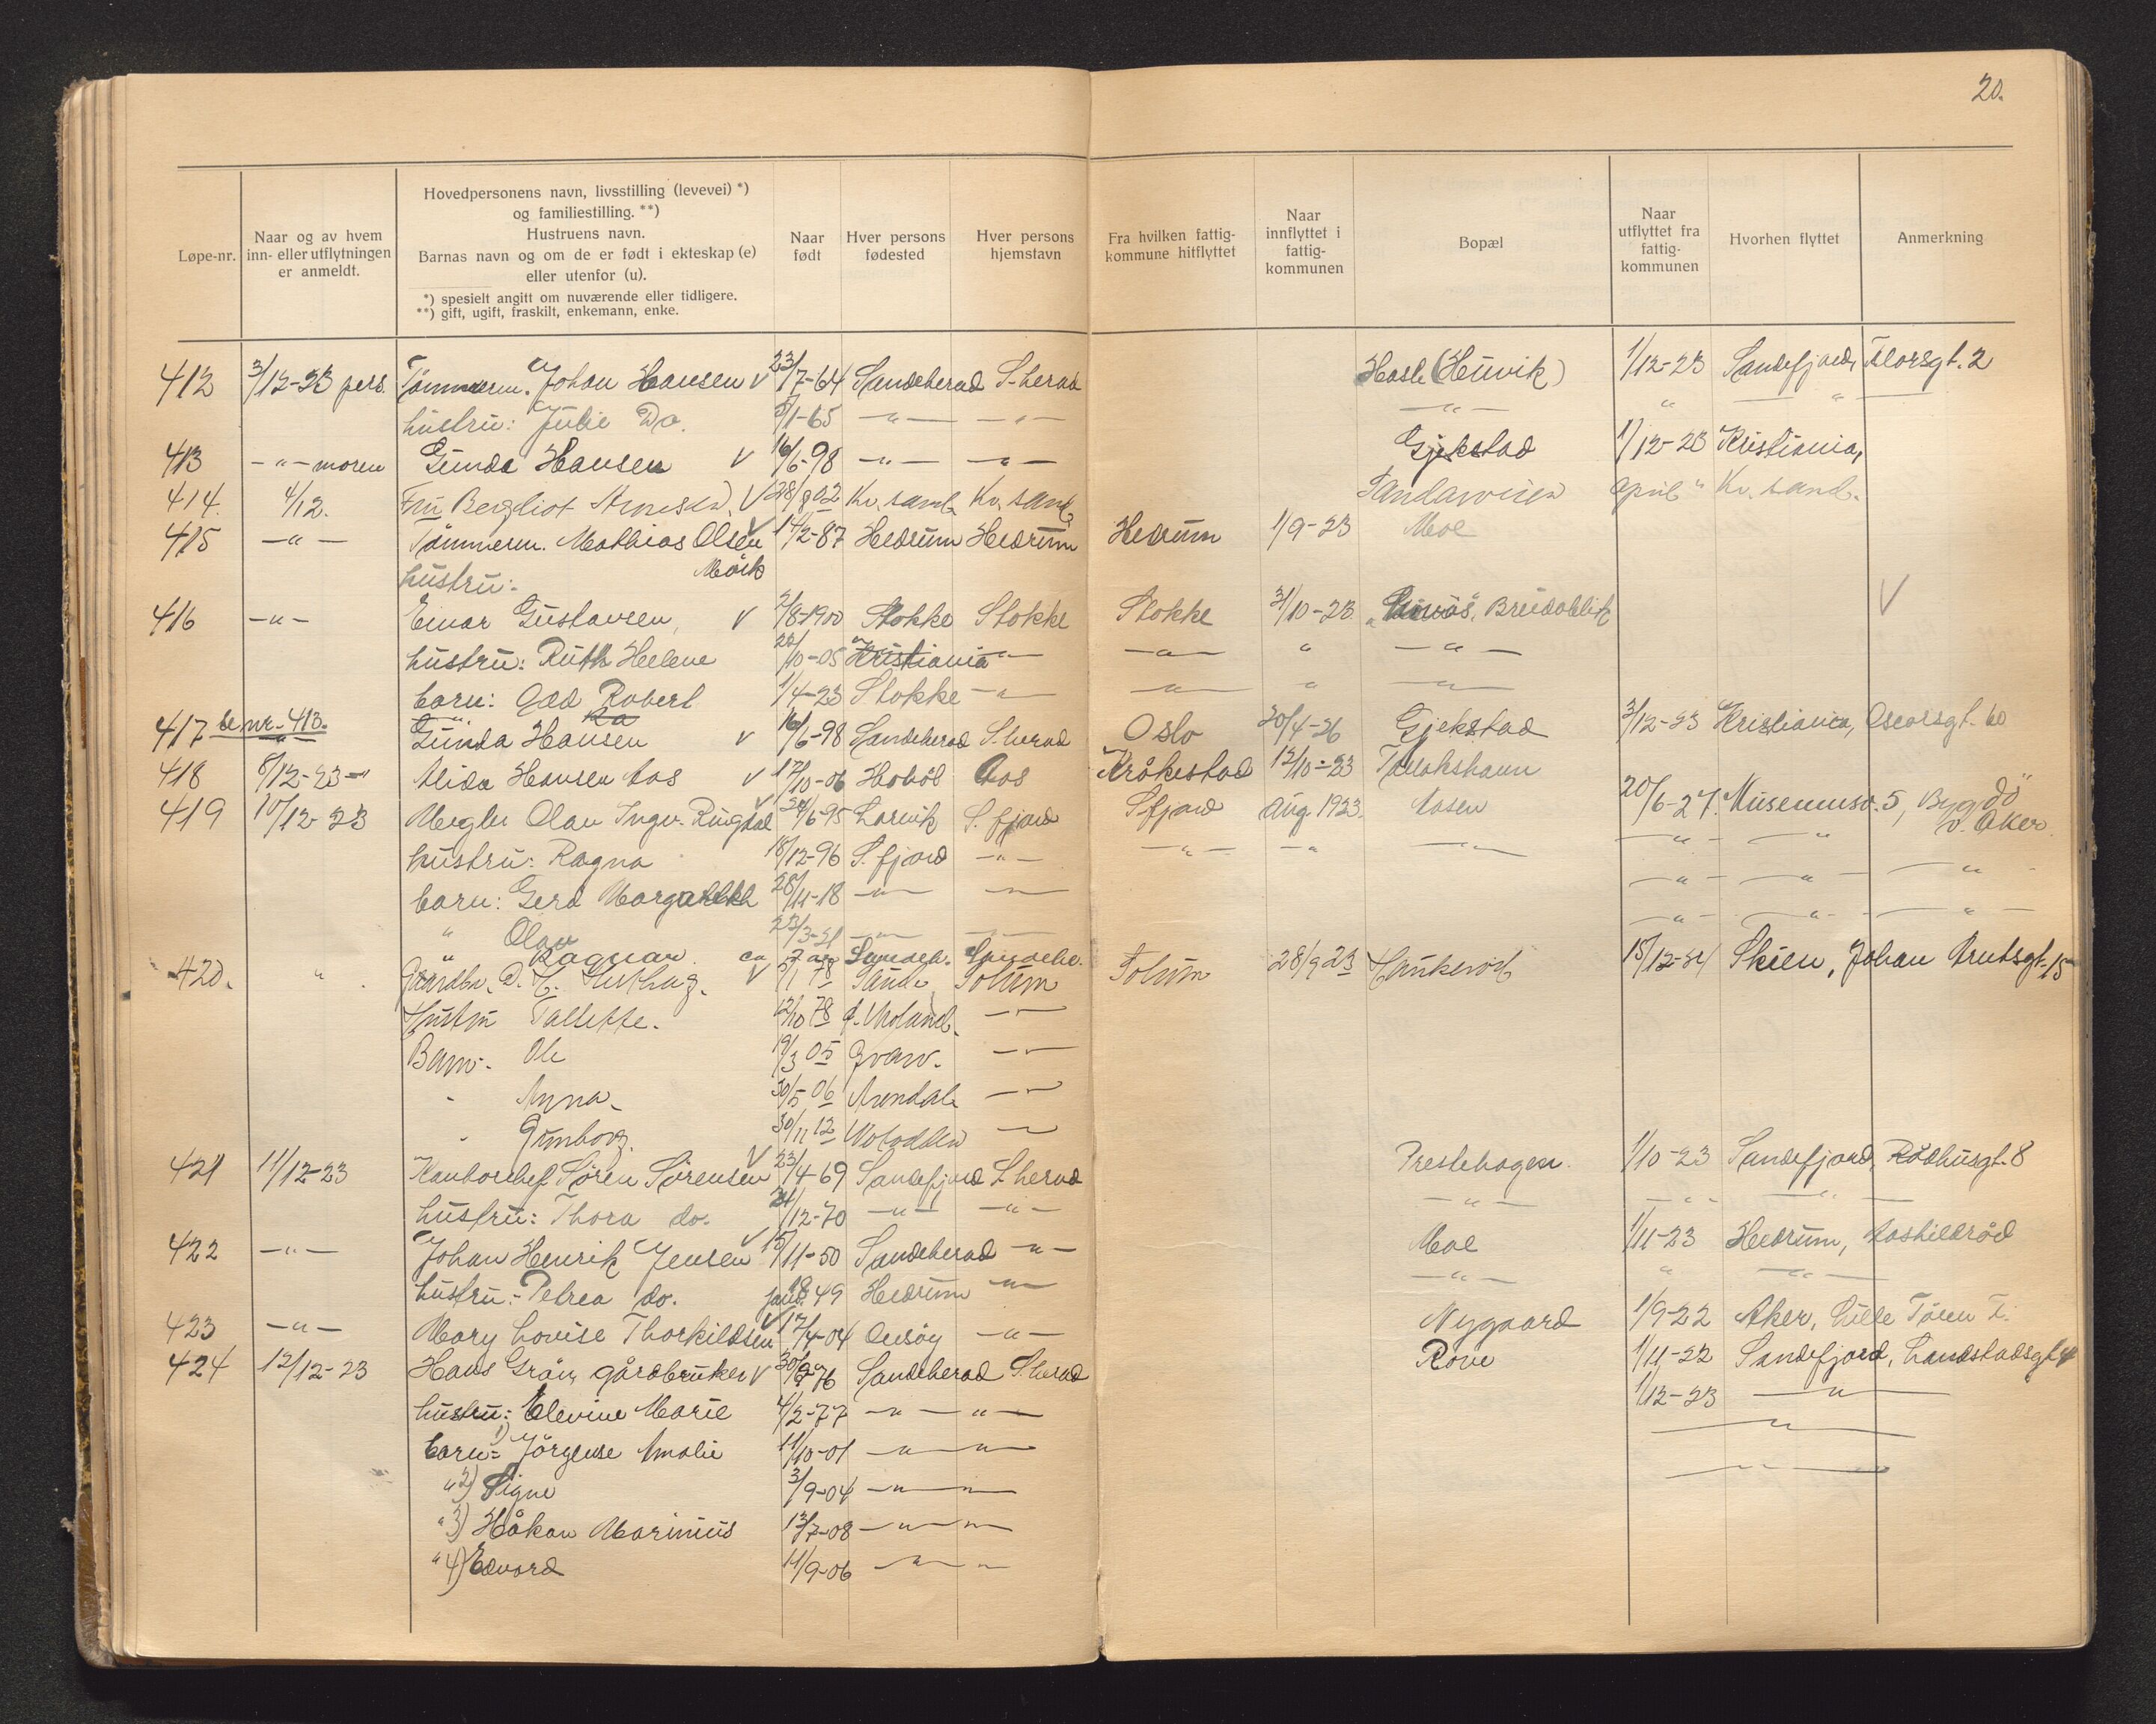 20.
Løpe-nr.
Naar og av hvem
inn- eller utflytningen
er anmeldt.
Hovedpersonens navn, livsstilling (levevei) *)
og familiestilling. **)
Hustruens navn.
Barnas navn og om de er født i ekteskap (e)
eller utenfor (u).
*) spesielt angitt om nuværende eller tidligere.
**) gift, ugift, fraskilt, enkemann, enke.
Naar
født
Hver persons
fødested
Hver persons
hjemstavn
Fra hvilken fattig-
kommune hitflyttet
Naar
innflyttet i
fattig-
kommunen
Bopæl
Naar
utflyttet fra
fattig-
kommunen
Hvorhen flyttet
Anmerkning
412 3/12-23 pers. Tømmerm. Johan Hansen V 23/7-64 Sandeherad S-herad Hasle (Huvik) 1/12-23 Sandefjord, Torsgt. 2
hustru: Julie Do. 5/1-65 -"- -"- -"- " -"-
413 -"- moren Gunda Hansen V 16/6-98 -"- -"- Gjekstad 1/12-23 Kristiania,
414. 4/12. Fru Bergliot Arnesen V 28/8 02 Kv. sand. Kv. sand. april " Kv. sand.
415 -"- Tømmerm. Mathias Olsen V 14/2-87 Hedrum Hedrum Hedrum 1/9-23 Moe
Mørk
hustru:
416 -"- Einar Gustavsen, V 2/8-1900 Stokke Stokke Stokke 31/10-23 Breidablik V
hustru: Ruth Helene 22/10-05 Kristiania -"- -"- " -"-
barn: Odd Robert 1/4-23 Stokke -"- -"- " -"-
417 se nr. 413. Gunda Hansen V 16/6-98 Sandeherad S.herad Oslo 30/4-26 Gjekstad 3/12-23 Kristiania, Oscarsgt. 60
418 8/12-23 -"- Alida Hansen Aas V 17/10-06 Hobøl Aas Kråkestad 12/10-23
419 10/12-23 Megler Olav Ingv. Ringdal V 24/6-95 Larvik S.fjord Sfjord Aug. 1923. Aasen 20/6-27. Museumsv. 5, Bygdö
v. Aker.
hustru: Ragna 18/12-96 S.fjord -"- -"- -"- -"- -"- "
barn: Gerd Margarethe 28/11-18 -"- -"- -"- -"- "
" Olav 23/3-21 -"- -"- -"- -"- "
" Ragnar. ca 2 år Sandeh. Sandehe.
420. " Gårdbr. D. C. V 5/1 78 Sande Solum Solum 28/9 23 Haukerød 15/12-24 Skien, Johan gt. 15
Hustru Tallette. 12/10 78 -"-
Barn- Ole 19/3 05 Gvarv. -"-
- Anna- 30/5 06 Arendal -"-
- Gunborg. 30/11 12 Notodden -"-
421 11/12-23 Kontorchef Søren Sørensen V 23/4-69 Sandefjord S.herad Prestehagen. 1/10-23 Sandefjord, Rådhusgt. 8
hustru: Thora do. 24/12-70 -"- -"- -"- -"- -"-
422 -"- Johan Henrik Jensen V 15/11-50 Sandeherad -"- Moe 1/11-23 Hedrum, Aashildrød
hustru: Petrea do. 18/jan. 49 Hedrum -"- -"- " -"-
423 -"- Mary Lovise Thorkildsen V 17/4-04 Onsøy -"- Nygaard 1/9-22 Aker, Lille Tøien
424 12/12-23 Hans Grån, gårdbruker V 30/9-76 Sandeherad S.herad Rove 1/11-22 Sandefjord, Landstadsgt. 4
hustru: Elevine Marie 4/2-77 -"- -"- 1/12-23 -"-
barn: 1) Jörgense Amalie 11/10-01 -"- -"- -"-
" 2) Signe 3/9-04 -"- -"- -"-
" 3) Håkon Marinius 13/7-08 -"- -"-
" 4) Edvard 11/9-06 -"- -"-